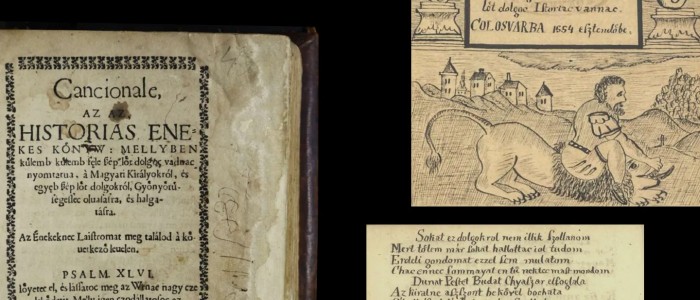 Cancionale,
AZ AZ,
HISTORIAS ENE-
KES KÖNYW: MELLYBEN
külemb külemb féle szép löt dolgoc vadnac
nyomtatua, à Magyari Királyokról, és
egyéb szép löt dolgokról, Gyönyörü-
ségessec oluasásra, és halga-
tásra.
Az Énekeknec Laistromat meg találod à kö-
uetkezö leuelen.
PSALM. XLVI,
Iöyetec el, és lássatoc meg az Wrnac nagy
löt dolgoc Istoriac vannac.
COLOSVARBA 1554 esztendöbe.
Sokat ez dolgokrol nem illik szollanom
Mert tölem már sokat hallottac iol tudom
Erdeli gondomat ezzel sem mulatom
Chac ennec sommayat en tü nektec mast mondom
Dunat Pestet Budat Chyaszar elfoglala
Az kiralne aszszont bekövel bochata